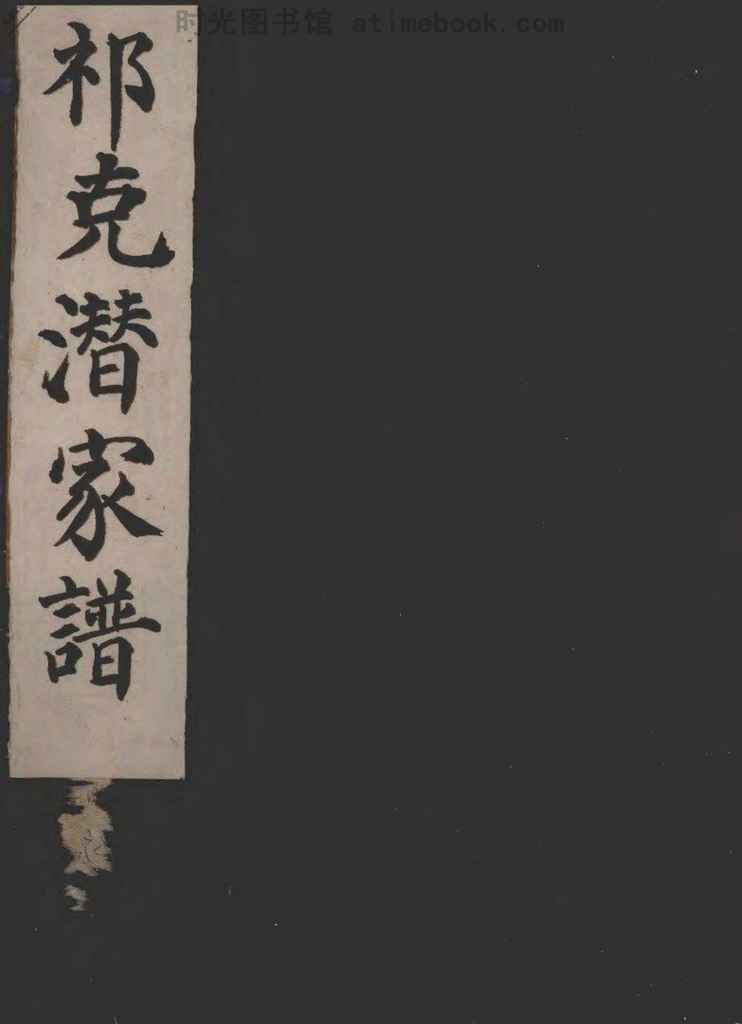 时光图书馆 atimebook.com
祁克潜家譜